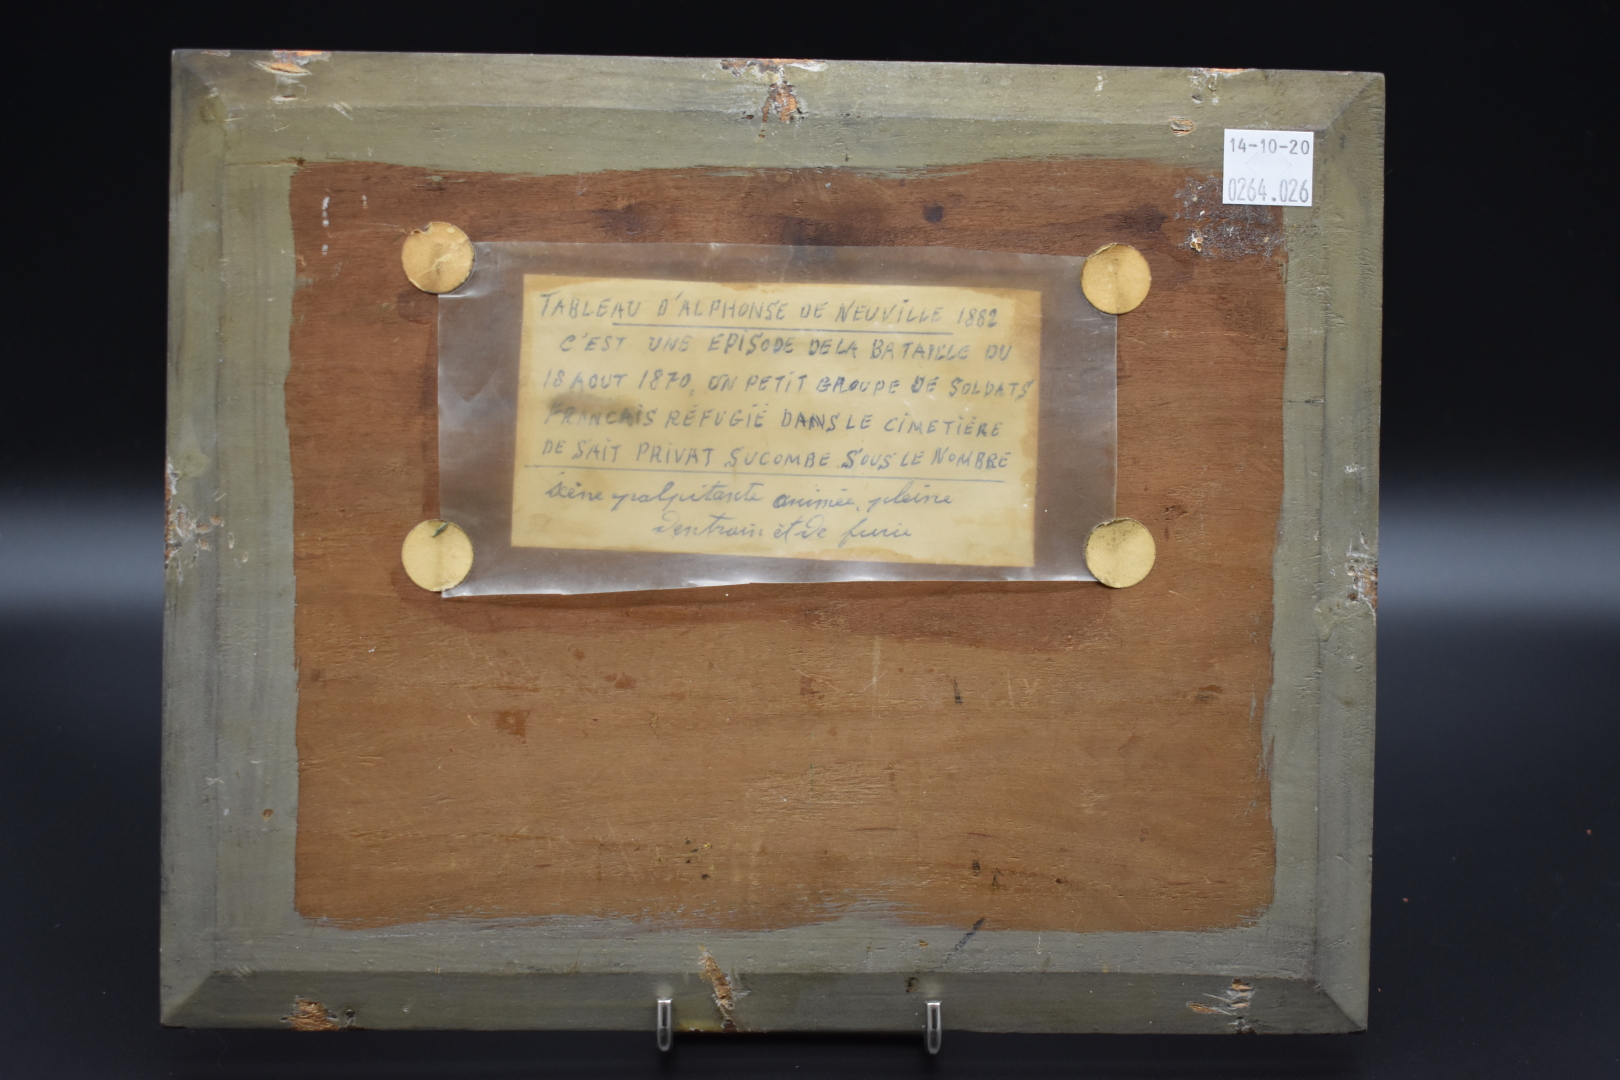 14-10-20
0264.026
TABLEAU D'ALPHONSE DE NEUVILLE 1882
C'EST UNE EPISODE DE LA BATAILLE DU
18 AOUT 1870, UN PETIT GROUPE DE SOLDATS
FRANCAIS RÉFUGIÉ DANS LE CIMETIÈRE
DE SAIT PRIVAT SUCOMBE SOUS LE NOMBRE
Scène palpitante animée, pleine
d'entrain et de furie